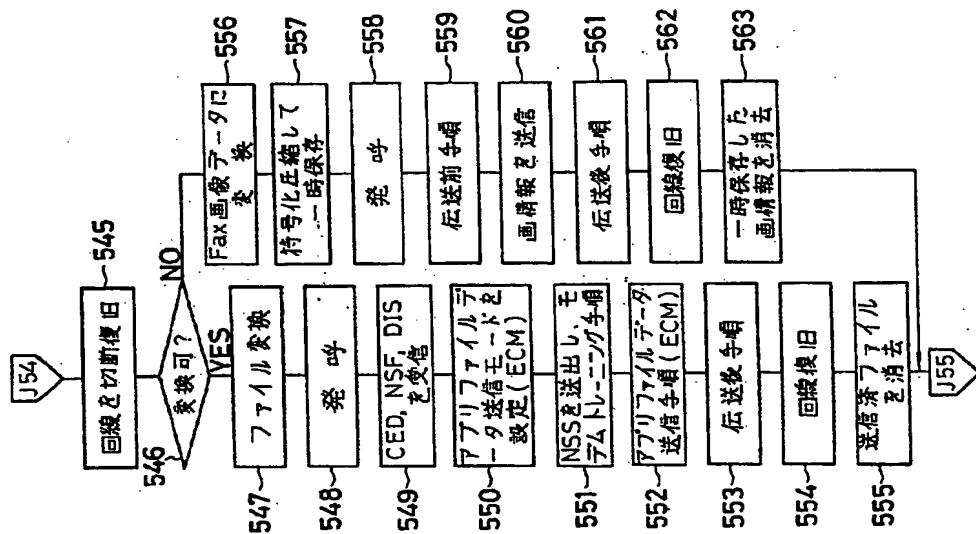 J54
回線を切断復旧
545
変換可?
546
NO
YES
ファイル変換
547
発呼
548
CED, NSF, DIS
を受信
549
アプリファイルデ
ータ送信モードを
設定(ECM)
550
NSSを送出し、モ
デムトレーニング手順
551
アプリファイルデータ
送信手順(ECM)
552
伝送後手順
553
回線復旧
554
送信済ファイル
を消去
555
Fax画像データに
変換
556
符号化圧縮して
一時保存
557
発呼
558
伝送前手順
559
画情報を送信
560
伝送後手順
561
回線復旧
562
一時保存した
画情報を消去
563
J55